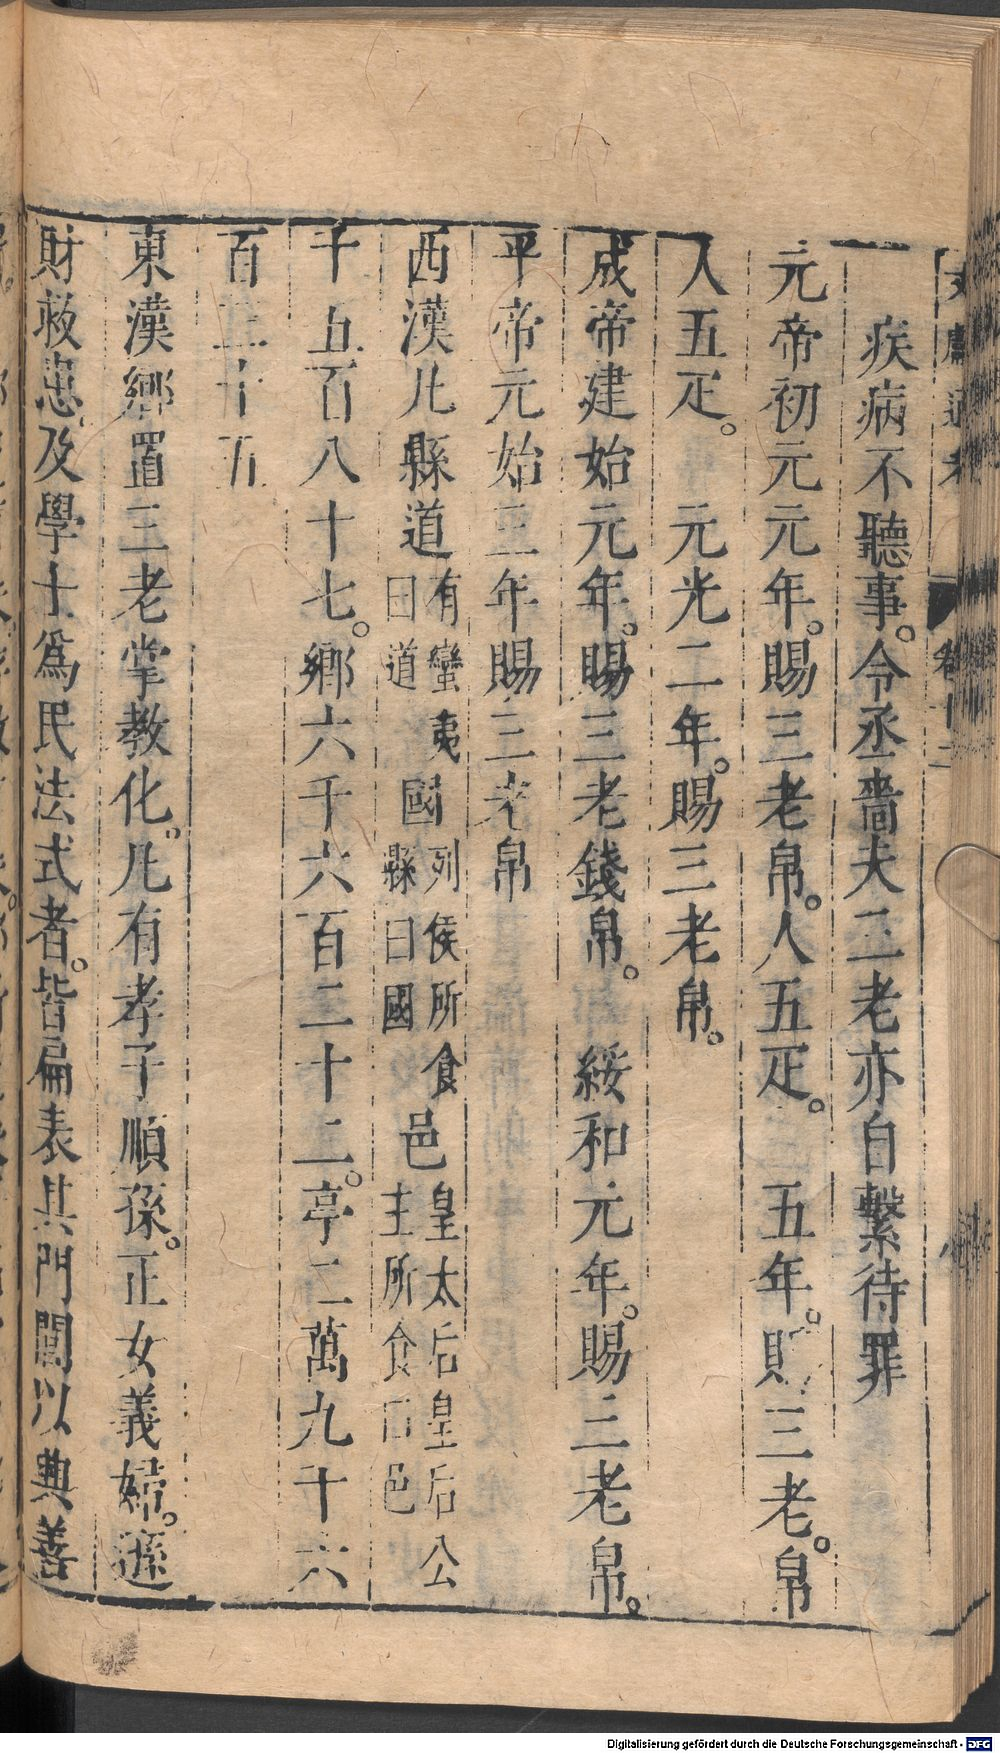 文獻通考 卷十二
疾病不聽事。令丞嗇夫三老亦自繫待罪
元帝初元元年。賜三老帛。人五疋。五年。賜三老。帛
人五疋。元光二年。賜三老帛。
成帝建始元年。賜三老錢帛。綏和元年。賜三老帛。
平帝元始三年賜三老帛
西漢凡縣道有蠻夷曰道國列侯所食縣曰國邑皇太后皇后公主所食曰邑
千五百八十七。鄉六千六百二十二。亭二萬九千六
百三十五
東漢鄉置三老掌教化。凡有孝子順孫。正女義婦。遜
財救患。及學士爲民法式者。皆扁表其門閭以興善
Digitalisierung gefördert durch die Deutsche Forschungsgemeinschaft - DFG